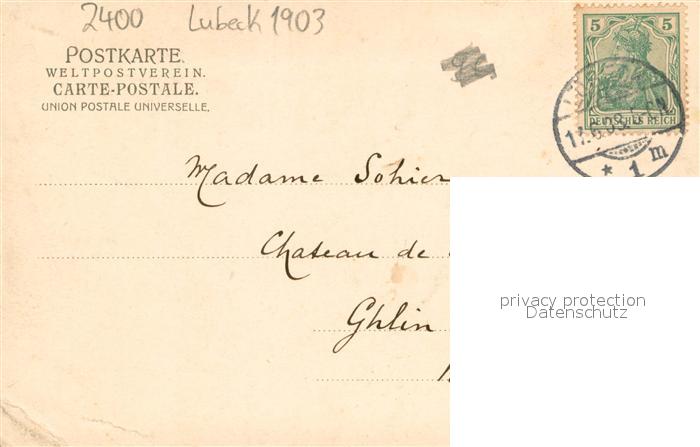 2400 Lubeck 1903
POSTKARTE.
WELTPOSTVEREIN.
CARTE-POSTALE.
UNION POSTALE UNIVERSELLE.
5 5
DEUTSCHES REICH
* 1 m
Madame Sohier
Chateau de
Ghlin
privacy protection
Datenschutz